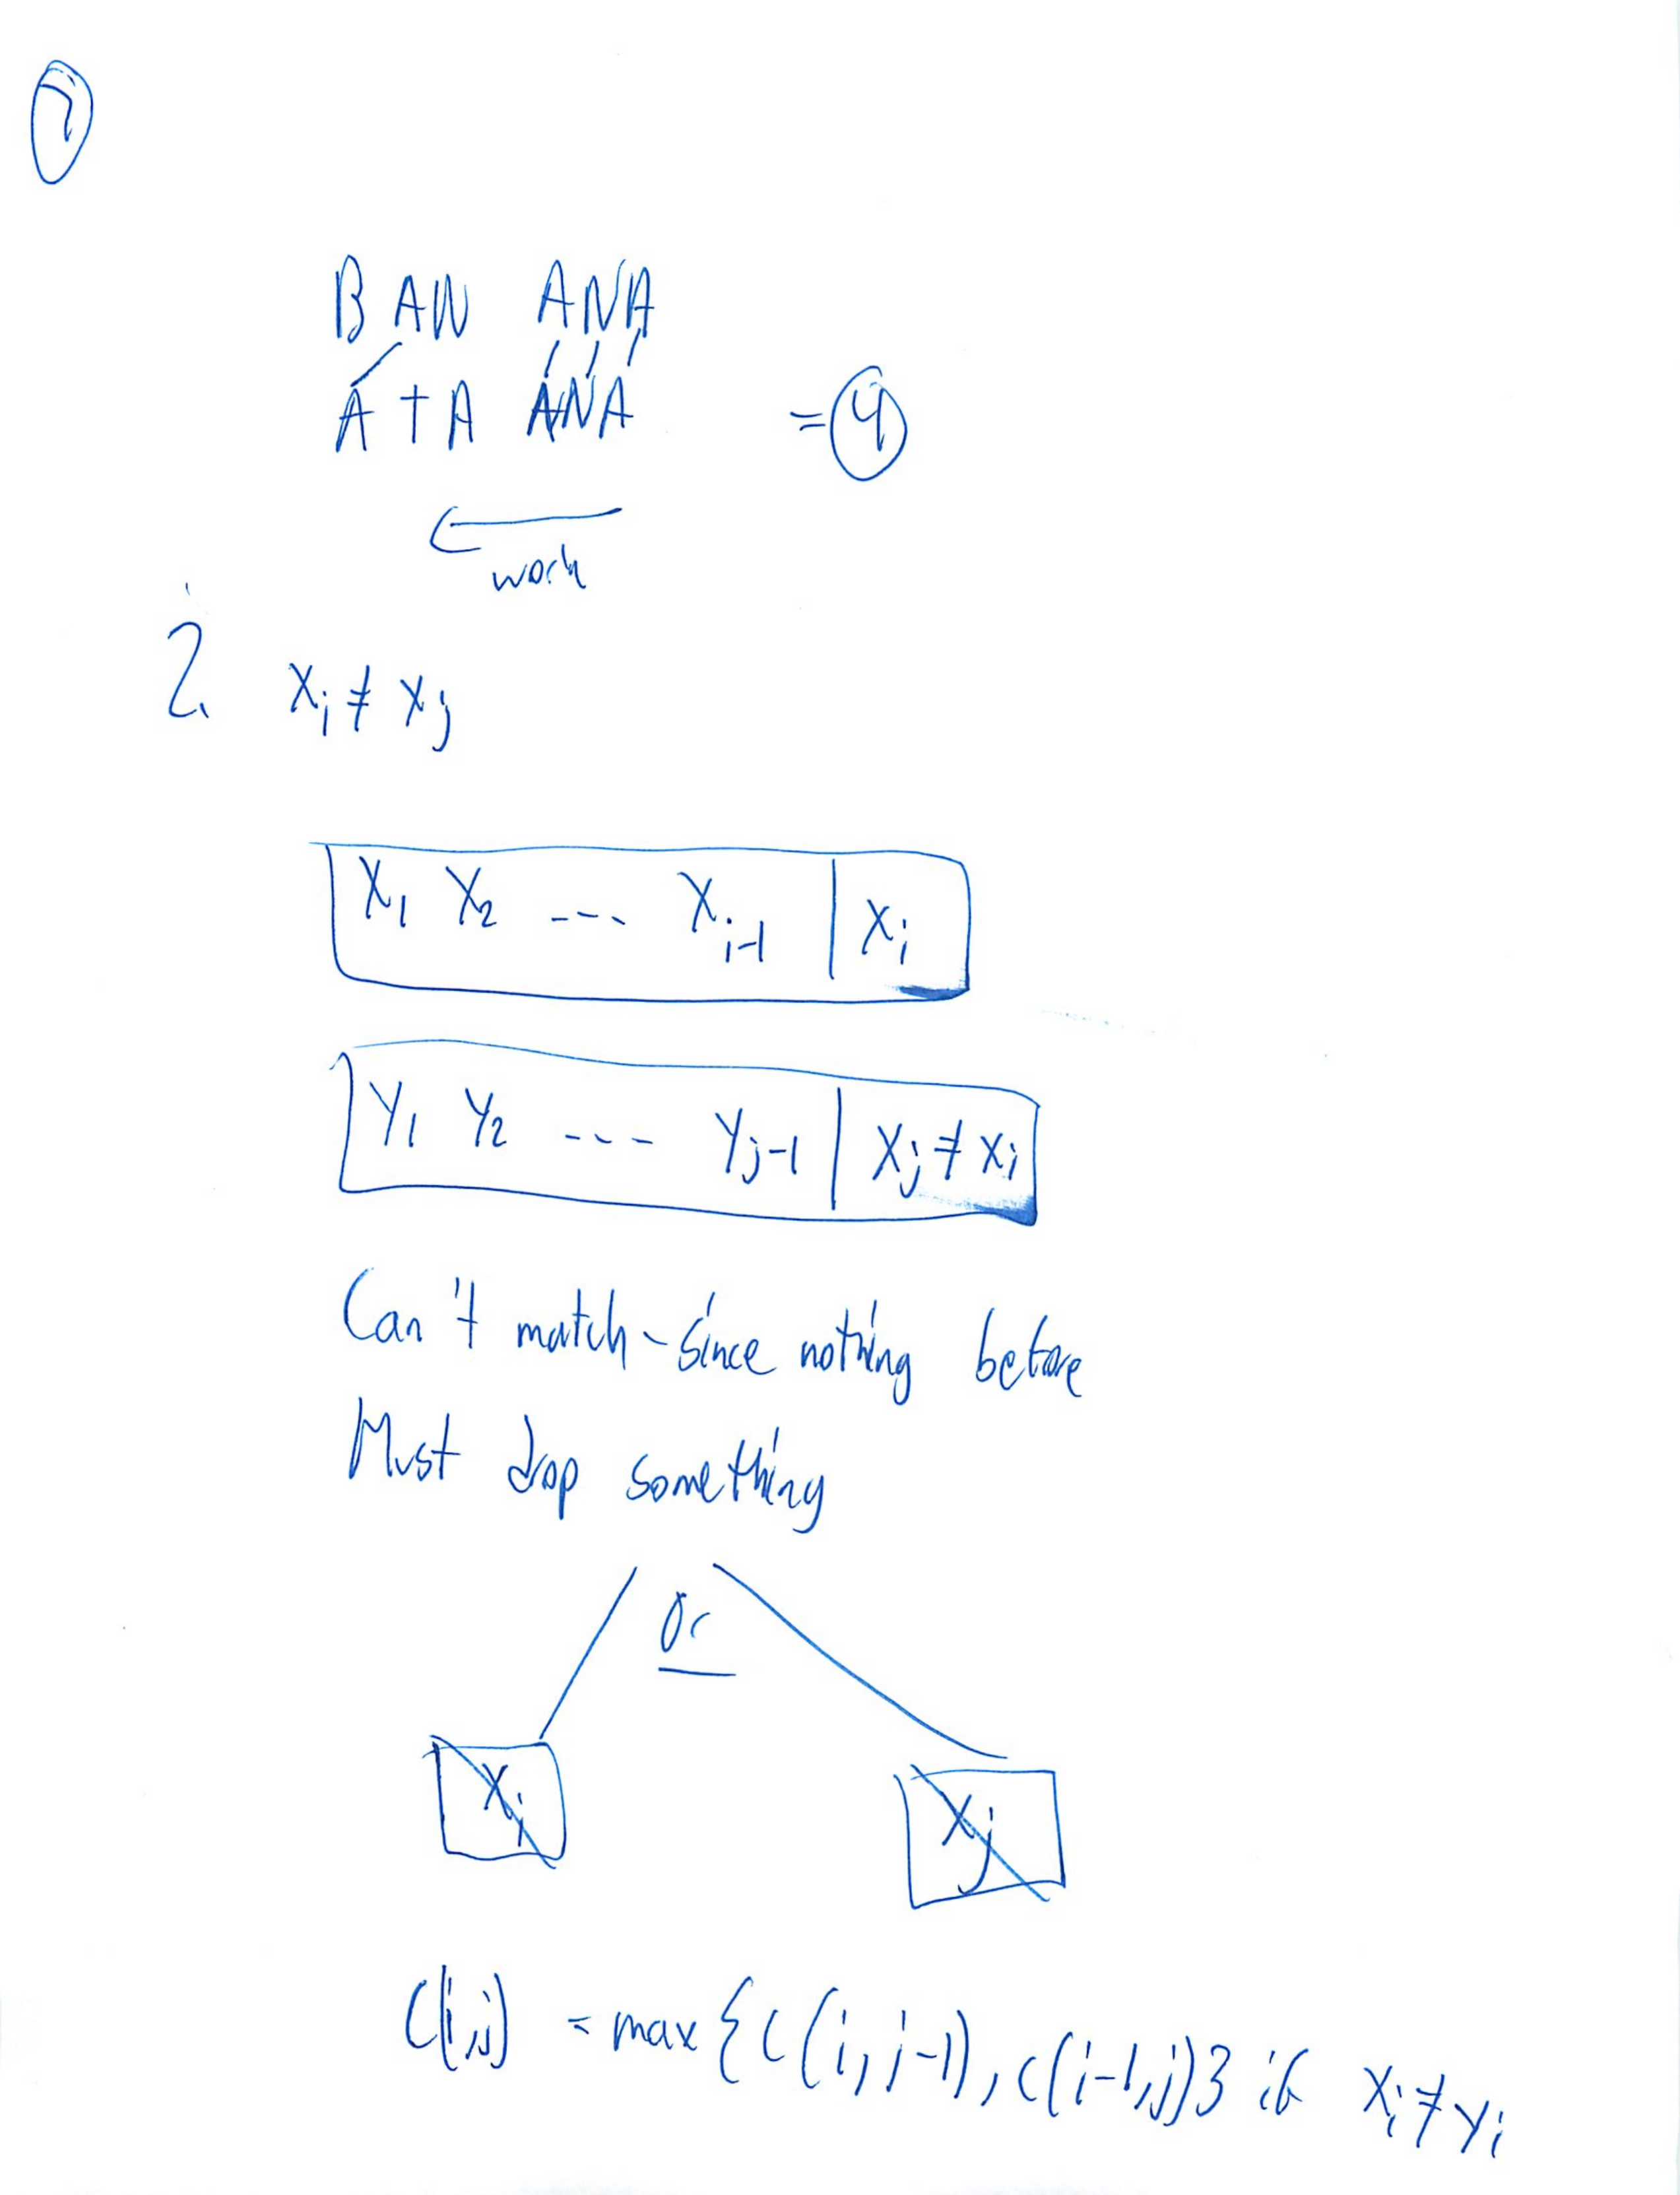 7
BAN ANA
ATA ANA = 4
work
2. Xi ≠ Xj
X1 X2 --- Xi-1 | Xi
Y1 Y2 --- Yj-1 | Xj ≠ Xi
Can't match - since nothing before
Must drop something
or
Xi Xj
C(i,j) = max {C(i,j-1), C(i-1,j)} if Xi ≠ Yi